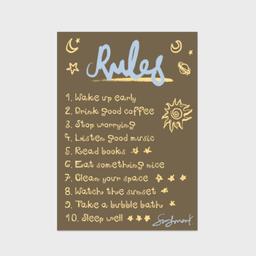 Rules
1. Wake up early
2. Drink good coffee
3. Stop worrying
4. Listen good music
5. Read books
6. Eat something nice
7. Clean your space
8. Watch the sunset
9. Take a bubble bath
10. Sleep well